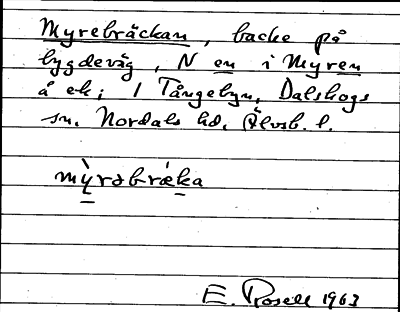 Myrebräckan, backe på
bygdeväg, N en i Myren
å ek; 1 Tångebyn, Dalskogs
sn. Nordals hd. Älvsb. l.
mỳrəbrǽka
E. Rosell 1963